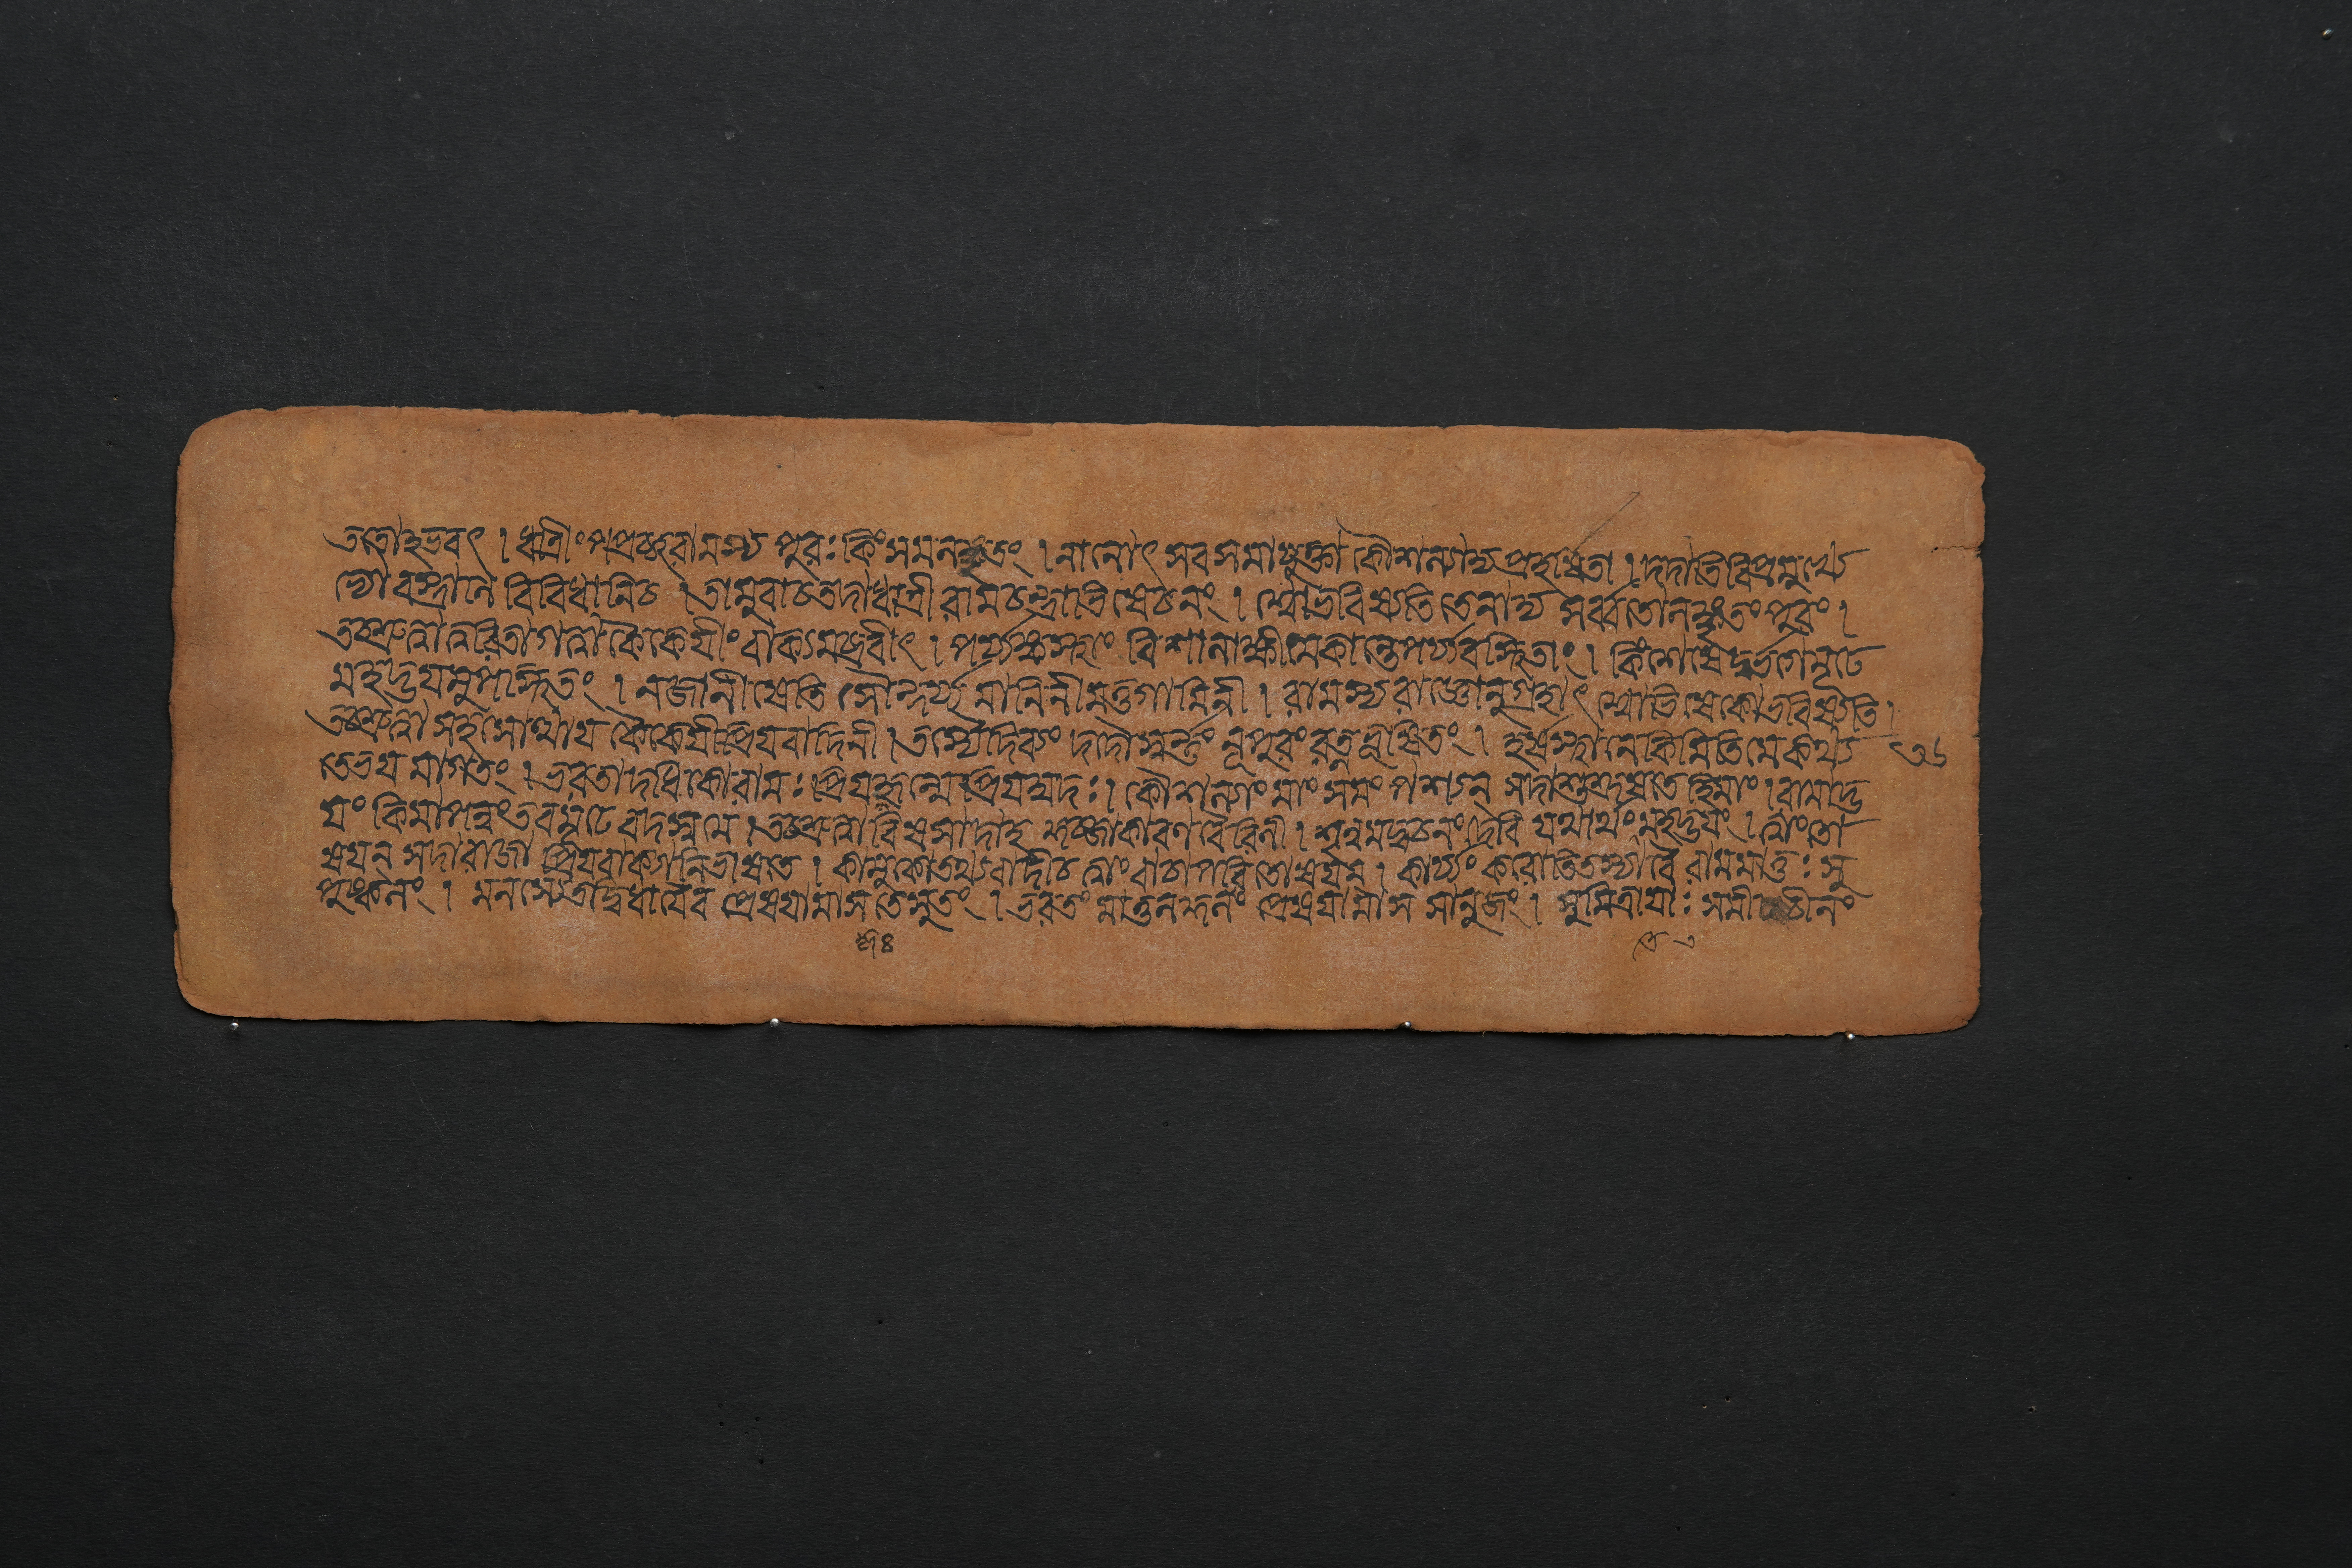 ততোঽভবৎ । ধাত্রীং পপ্রচ্ছ রামস্য পুরঃ কিং সমলঙ্কৃতং । নানোৎসবসমাযুক্তা কৌশল্যাদ্য প্রহর্ষিতা । দদাতি বিপ্রমুখ্যে
ভ্যো বস্ত্রানি বিবিধানি চ । তামুবাচ তদা ধাত্রী রামচন্দ্রাভিষেচনং । শ্বো ভবিষ্যতি তেনাদ্য সর্ব্বতোলঙ্কৃতং পুরং ।
তচ্ছ্রুত্বা ত্বরিতা গত্বা কৈকেয়ীং বাক্যমব্রবীৎ । পর্য্যঙ্কস্থাং বিশালাক্ষীমেকান্তে পর্য্যবস্থিতাং । কিং শেষে দুর্ভগে মূঢে
মহদ্ভয়মুপস্থিতং । ন জানীষেতি সৌন্দর্য্যমানিনী মত্তগামিনী । রামস্য রাজ্ঞোনুগ্রহাৎ শ্বোভিষেকো ভবিষ্যতি ।
তচ্ছ্রুত্বা সহসোত্থায় কৈকেয়ী প্রিয়বাদিনী । তস্যৈ দিব্যং দদৌ স্বর্ণ্ণ নূপুরং রত্নভূষিতং । হর্ষস্থানে কিমিতি মে কথ্য ৩৬
তে ভয়মাগতং । ভরতাদধিকো রামঃ প্রিয়কৃন্মে প্রিয়ম্বদঃ । কৌশল্যাং মাং সমং পশ্যন্ সদা শুশ্রূষতে হি মাং । রামাদ্ভ
য়ং কিমাপন্নং তব মূঢে বদস্ব মে । তচ্ছ্রুত্বা বিষসাদাহ কুব্জাকারণবৈরিনী । শৃনু মদ্বচনং দেবি যথার্থং মহদ্ভয়ং । ত্বাং তো
ষয়ন্ সদা রাজা প্রিয়বাক্যানি ভাষতে । কামুকোতথ্যবাদী চ ত্বাং বাচা পরিতোষয়ন্ । কার্য্যং করোতি তস্যা বৈ রামমাতুঃ সু
পুষ্কলং । মনস্যেতদ্বিধায়ৈব প্রেষয়ামাস তে সুতং । ভরতং মাতুলকুলং প্রেষয়ামাস সানুজং । সুমিত্রায়াঃ সমীচীনং